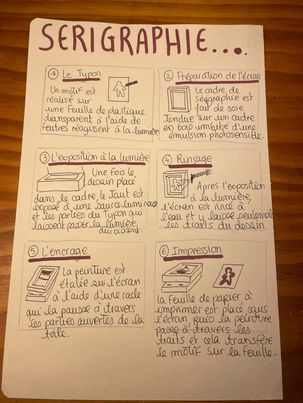 SERIGRAPHIE...
① Le Typon
Un motif est
réalisé sur
une feuille de plastique
transparent à l'aide de
feutres réagissent à la lumière
② Préparation de l'écran
Le cadre de
sérigraphie est
fait de soie
tendue sur un cadre
en bois imbibé d'une
émulsion photosensible.
③ L'exposition à la lumière
Une fois le
dessin placé
dans le cadre, le tout est
exposé à une source lumineuse
et les parties du Typon qui
laissent passer la lumière
durcissent.
④ Rinçage
Après l'exposition
à la lumière,
l'écran est rincé à
l'eau et y laisse seulement
les traits du dessin
⑤ L'encrage
La peinture est
étalée sur l'écran
à l'aide d'une racle
qui la pousse à travers
les parties ouvertes de la
toile.
⑥ Impression
La feuille de papier à
imprimer est placé sous
l'écran, puis la peinture
passe à travers les
traits et cela transfère
le motif sur la feuille.